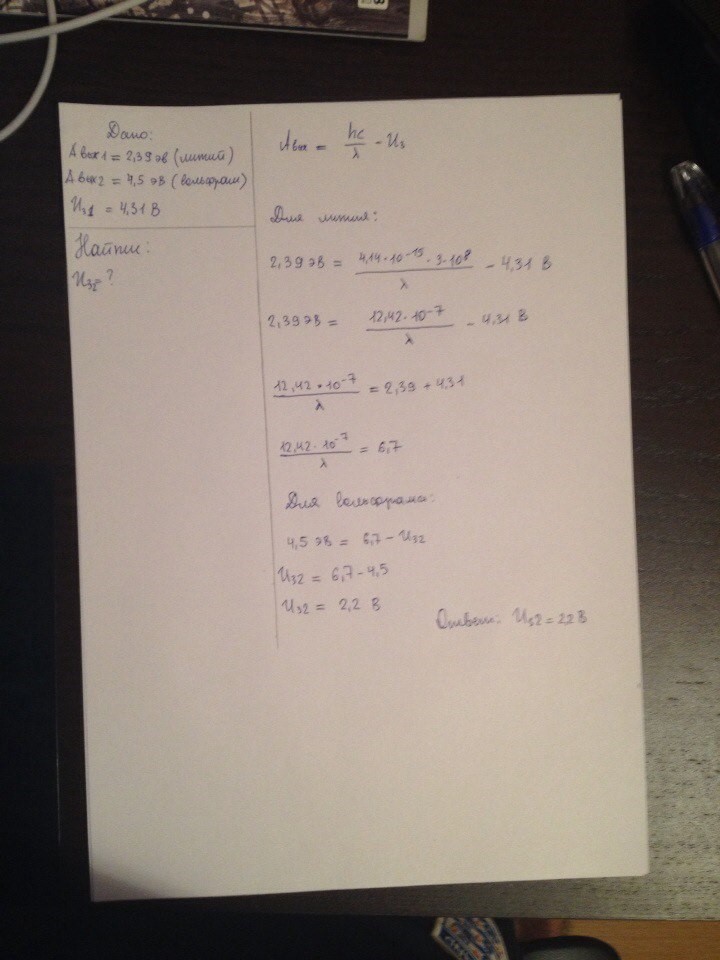 Дано:
Aвых1 = 2,39 эв (литий)
Aвых2 = 4,5 эв (вольфрам)
Uз1 = 4,31 В
Найти:
Uз2 = ?
Aвых = hc/λ - Uз
Для лития:
2,39 эВ = 4,14·10⁻¹⁵·3·10⁸/λ - 4,31 В
2,39 эВ = 12,42·10⁻⁷/λ - 4,31 В
12,42·10⁻⁷/λ = 2,39 + 4,31
12,42·10⁻⁷/λ = 6,7
Для вольфрама:
4,5 эВ = 6,7 - Uз2
Uз2 = 6,7 - 4,5
Uз2 = 2,2 В
Ответ: Uз2 = 2,2 В